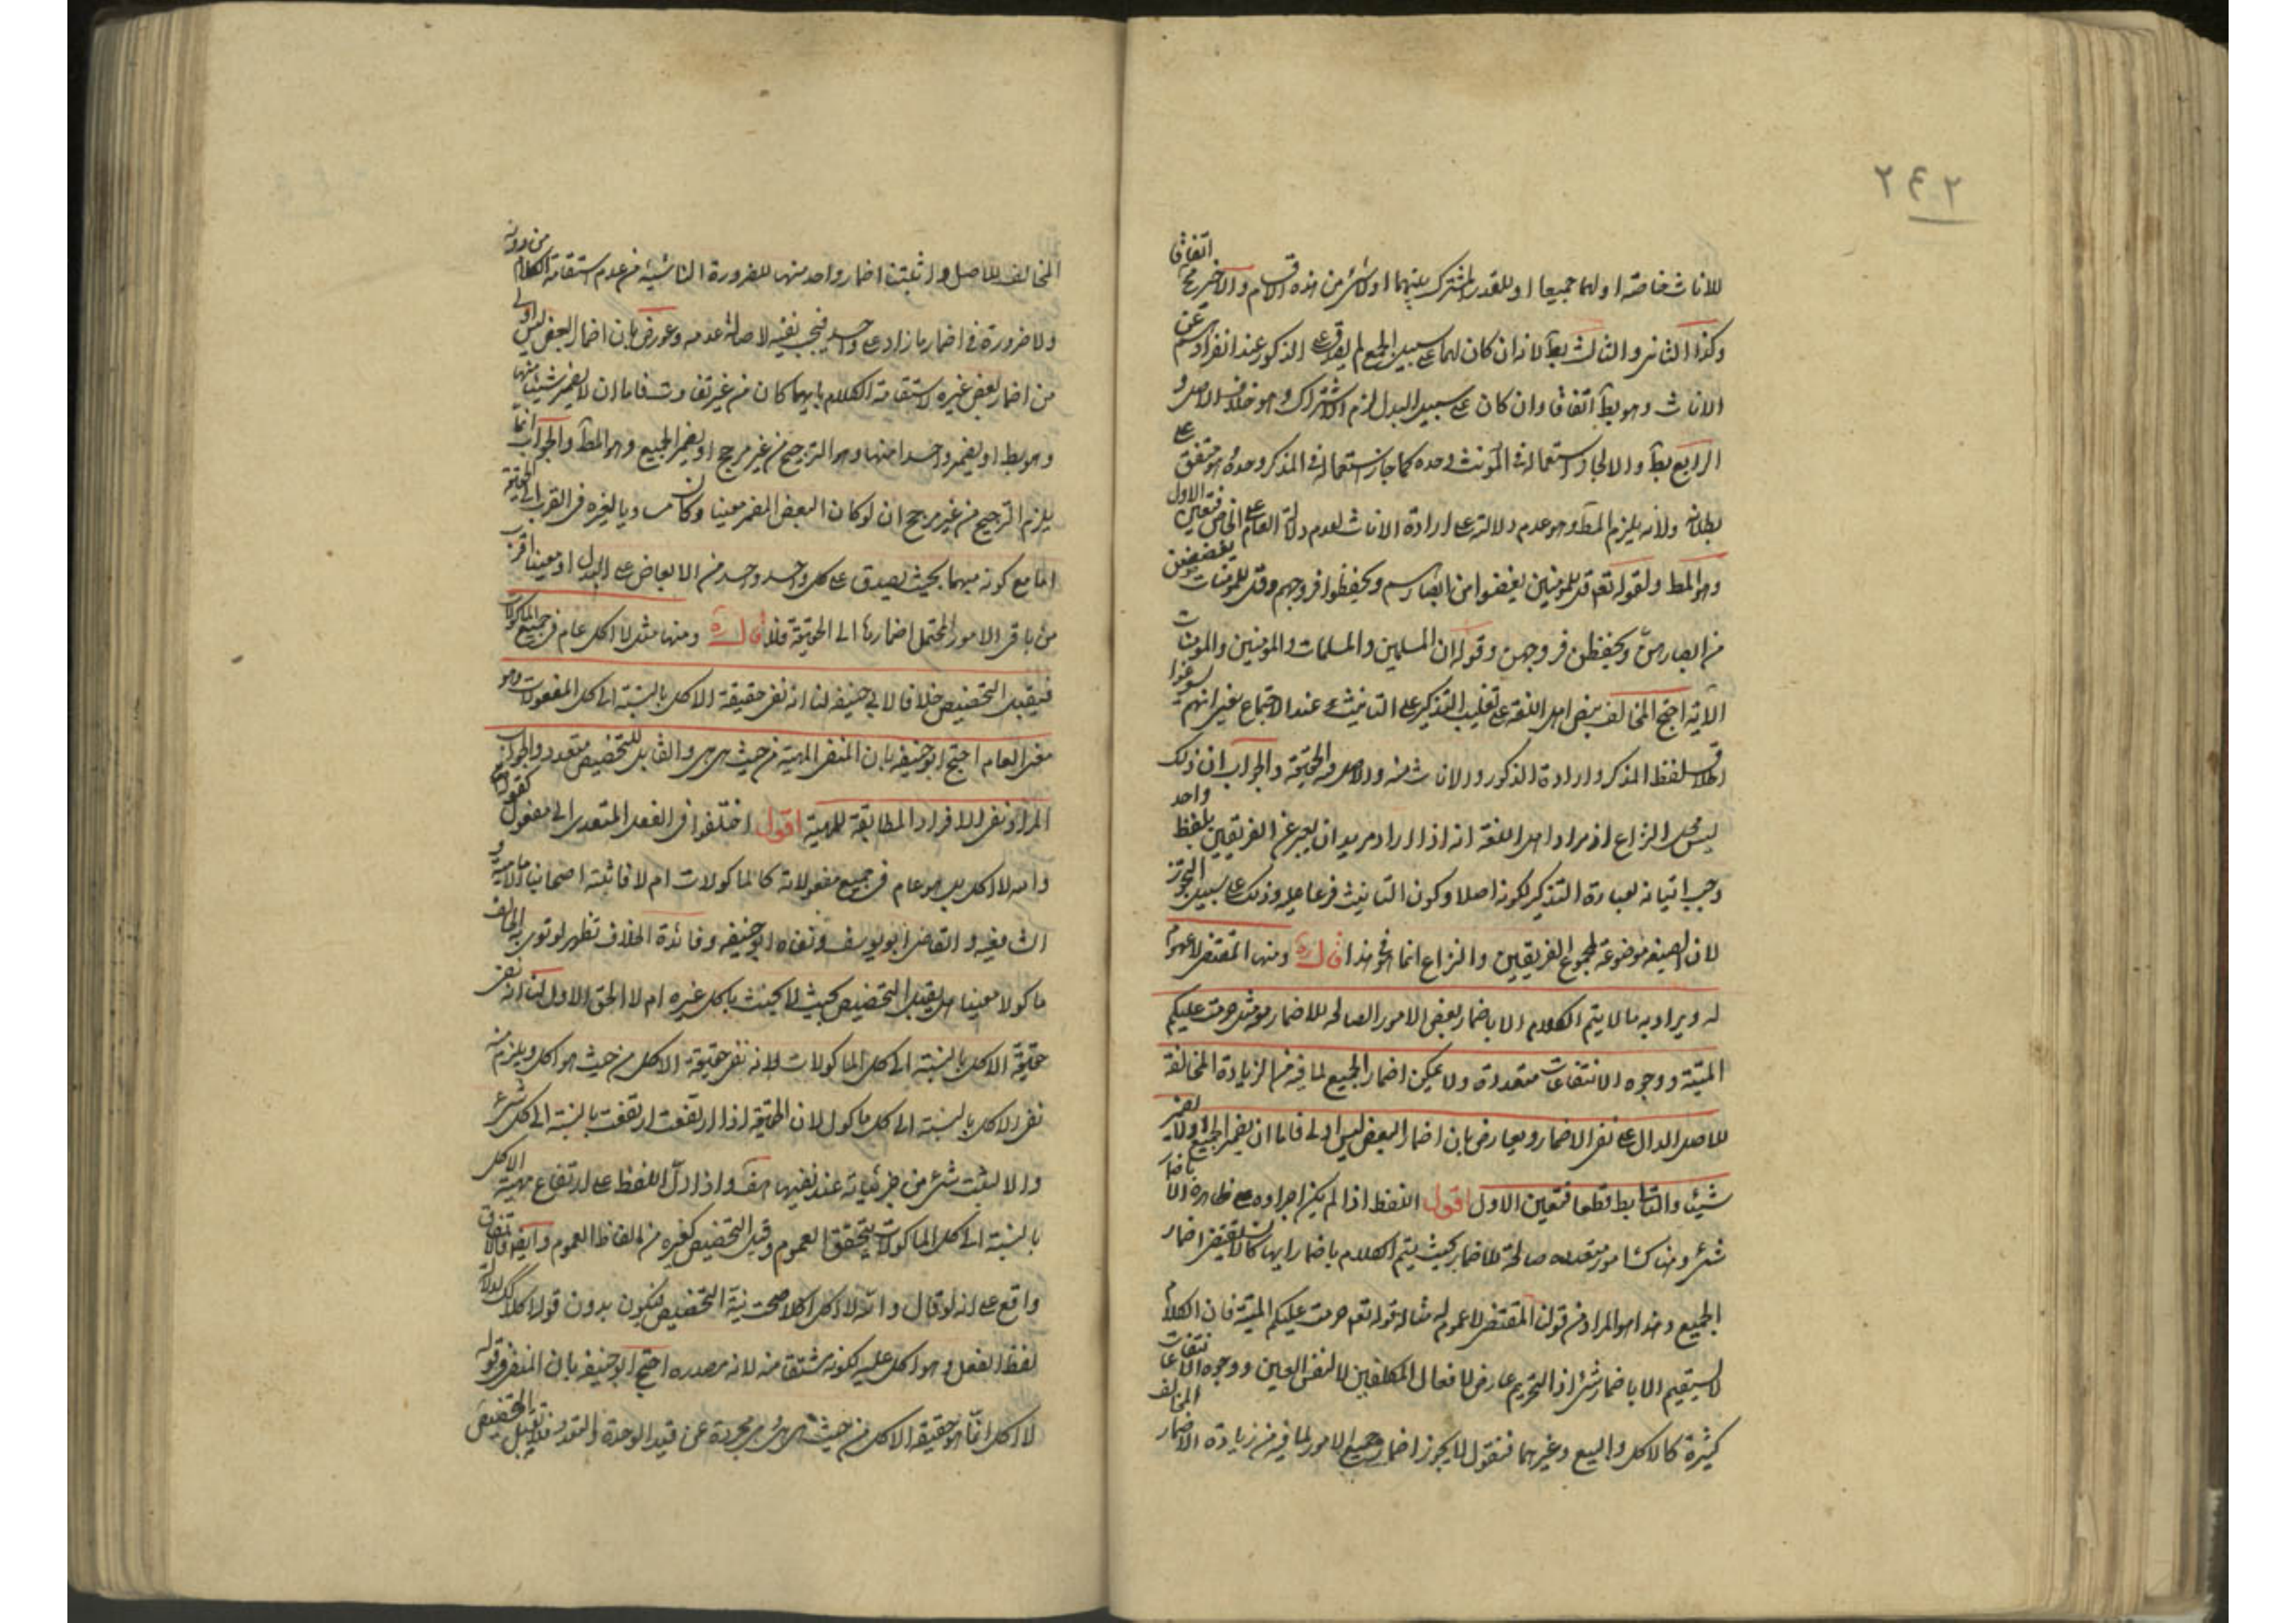 ٢٤٢
للاناث خاصة او لهما جميعا او للقدر المشترك بينهما او لشئ من هذه الاقسام والاخير بط اتفاق
وكذا الثانى والثالث بط لانه ان كان لهما على سبيل الجمع لم يصدق على الذكور عند انفرادهم عن
الاناث وهو بط اتفاقا وان كان على سبيل البدل لزم الاشتراك وهو خلاف الاصل و
الرابع بط والا لجاز استعماله فى المؤنث وحده كما جاز استعماله فى المذكر وحده وهو متفق على
بطلانه ولانه يلزم المط وهو عدم دلالته على ارادة الاناث لعدم دلالة العام على الخاص فتعين الاول
وهو المط ولقوله تعم قل للمؤمنين يغضوا من ابصارهم ويحفظوا فروجهم وقل للمؤمنات يغضضن
من ابصارهن ويحفظن فروجهن وقوله ان المسلمين والمسلمات والمؤمنين والمؤمنات
الآية احتج المخالف بنص اهل اللغة على تغليب التذكير على التانيث عند الاجتماع بمعنى انهم سوغوا
اطلاق لفظ المذكر وارادة الذكور والاناث منه والاصل فيه الحقيقة والجواب ان ذلك
ليس محل النزاع اذ مراد اهل اللغة انه اذا اراد مريد ان يعبر عن الفريقين بلفظ واحد
وجب اتيانه بعبارة التذكير لكونه اصلا وكون التانيث فرعا عليه وذلك على سبيل التجوز
لان الصيغة موضوعة لمجموع الفريقين والنزاع انما هو فى هذا قال ره ومنها المقتضى لا عموم
له ويراد به ما لا يتم الكلام الا باضمار بعض الامور الصالحة للاضمار مثل حرمت عليكم
الميتة ووجوه الانتفاعات متعددة ولا يمكن اضمار الجميع لما فيه من الزيادة المخالفة
للاصل الدال على نفى الاضمار ويعارض بان اضمار البعض ليس اولى فاما ان يضمر الجميع او لا يضمر
شيئا والثانى بط قطعا فتعين الاول اقول اللفظ اذا لم يكن اجراؤه على ظاهره الا باضمار
شئ وهناك امور متعدده صالحة للاضمار بحيث يتم الكلام باضمار ايها كان لا يقتضى اضمار
الجميع وهذا هو المراد من قولنا المقتضى لا عموم له مثاله قوله تعم حرمت عليكم الميتة فان الكلام
لا يستقيم الا باضمار شئ اذ التحريم عارض لافعال المكلفين لا لنفس العين ووجوه الانتفاعات
كثيرة كالاكل والبيع وغيرهما فنقول لا يجوز اضمار جميع الامور لما فيه من زيادة الاضمار المخالف
المخالف للاصل وانما اثبتنا اضمار واحد منها للضرورة الناشئة من عدم استقامة الكلام من دونه
ولا ضرورة فى اضمار ما زاد على واحد فيجب نفيه لاصالة عدمه وعورض بان اضمار البعض ليس اولى
من اضمار بعض غيره لاستقامة الكلام بايهما كان من غير تفاوت فاما ان لا يضمر شيئا منها
وهو بط او يضمر واحدا منها وهو الترجيح من غير مرجح او يضمر الجميع وهو المط والجواب انما
يلزم الترجيح من غير مرجح ان لو كان البعض المضمر معينا وكان مساويا لغيره فى القرب الى الحقيقة
اما مع كونه مبهما بحيث يصدق على كل واحد واحد من الابعاض على البدل او معينا اقرب
من باقى الامور المحتمل اضمارها الى الحقيقة فلا قال ره ومنها مثل لا اكل عام فى جميع الماكولات
فيقبل التخصيص خلافا لابى حنيفه لنا انه نفى حقيقة الاكل بالنسبة الى كل المفعولات وهو
معنى العام احتج ابو حنيفه بان المنفى الماهية من حيث هى هى والقابل للتخصيص متعدد والجواب
المراد نفى الافراد المطابقة للماهية اقول اختلفوا فى الفعل المتعدى الى مفعول كقولنا
والله لا اكل هل هو عام فى جميع مفعولاته كالماكولات ام لا فاثبته اصحابنا الامامية و
الشافعية والقاضى ابو يوسف ونفاه ابو حنيفه وفائدة الخلاف تظهر لو نوى به الحالف
ماكولا معينا هل يقبل التخصيص بحيث لا يحنث باكل غيره ام لا الحق الاول لنا انه نفى
حقيقة الاكل بالنسبة الى كل الماكولات لانه نفى حقيقة الاكل من حيث هو اكل ويلزم منه
نفى الاكل بالنسبة الى كل ماكول لان الحقيقة اذا ارتفعت ارتفعت بالنسبة الى كل شئ
والا لثبت شئ من جزئياته عند نفيها هف واذا دل اللفظ على ارتفاع مهية الاكل
بالنسبة الى كل الماكولات تحقق العموم وقبل التخصيص كغيره من الفاظ العموم وايضا فالاتفاق
واقع على انه لو قال والله لا اكل اكلا صحت نية التخصيص فيكون بدون قوله اكلا كذلك لدلالة
لفظ الفعل وهو اكل عليه لكونه مشتقا منه لانه مصدره احتج ابو حنيفه بان المنفى فى قوله
لا اكل انما هو حقيقة الاكل من حيث هى هى مجردة عن قيد الوحدة والتعدد فلا يقبل التخصيص